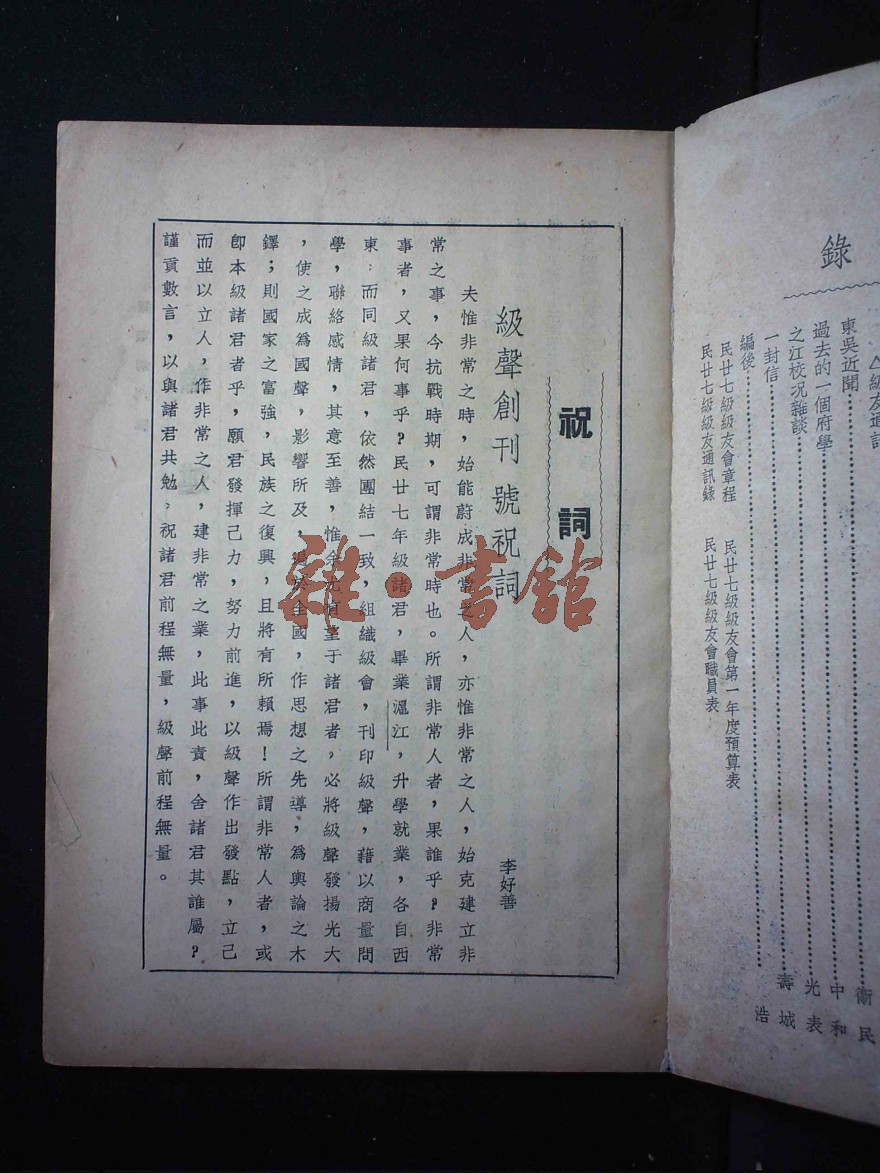 錄
△級友通訊
東吳近聞 衛民
過去的一個府學 中和
之江校况雜談 光表
一封信 壽城
編後 浩
民廿七級級友會章程 民廿七級級友會第一年度預算表
民廿七級級友通訊錄 民廿七級級友會職員表
祝詞
級聲創刊號祝詞 李好善
夫惟非常之時，始能蔚成非常之人，亦惟非常之人，始克建立非
常之事，今抗戰時期，可謂非常時也。所謂非常人者，果誰乎？非常
事者，又果何事乎？民廿七年級諸君，畢業滬江，升學就業，各自西
東：而同級諸君，依然團結一致，組織級會，刊印級聲，藉以商量問
學，聯絡感情，其意至善，惟余尤有望于諸君者。必將級聲發揚光大
，使之成爲國聲，影響所及，遍於全國，作思想之先導，爲輿論之木
鐸；則國家之富強，民族之復興，且將有所賴焉！所謂非常人者，或
卽本級諸君者乎，願君發揮己力，努力前進，以級聲作出發點，立己
而並以立人，作非常之人，建非常之業，此事此責，舍諸君其誰屬？
謹貢數言，以與諸君共勉。祝諸君前程無量，級聲前程無量。
雜·書館